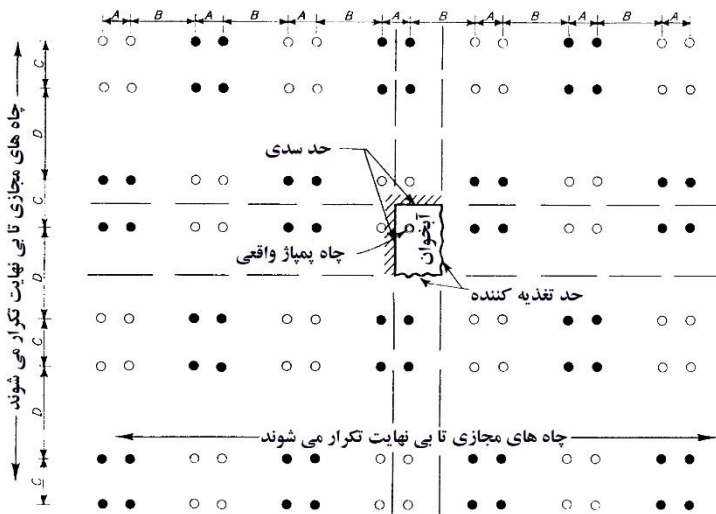 A B A B A B A B A B A B A
C
D
C
D
C
D
C
چاه های مجازی تا بی نهایت تکرار می شوند
حد سدی
آبخوان
چاه پمپاژ واقعی
حد تغذیه کننده
چاه های مجازی تا بی نهایت تکرار می شوند